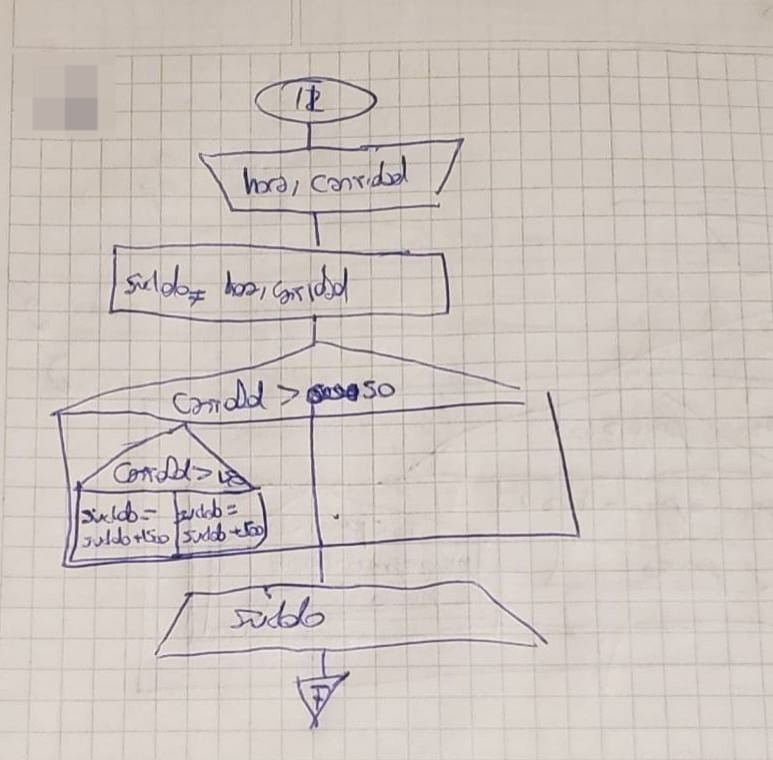 hora, cantidad
sueldo = hora, cantidad
cantidad > 50
cantidad >
sueldo = sueldo =
sueldo + sueldo +
sueldo
F